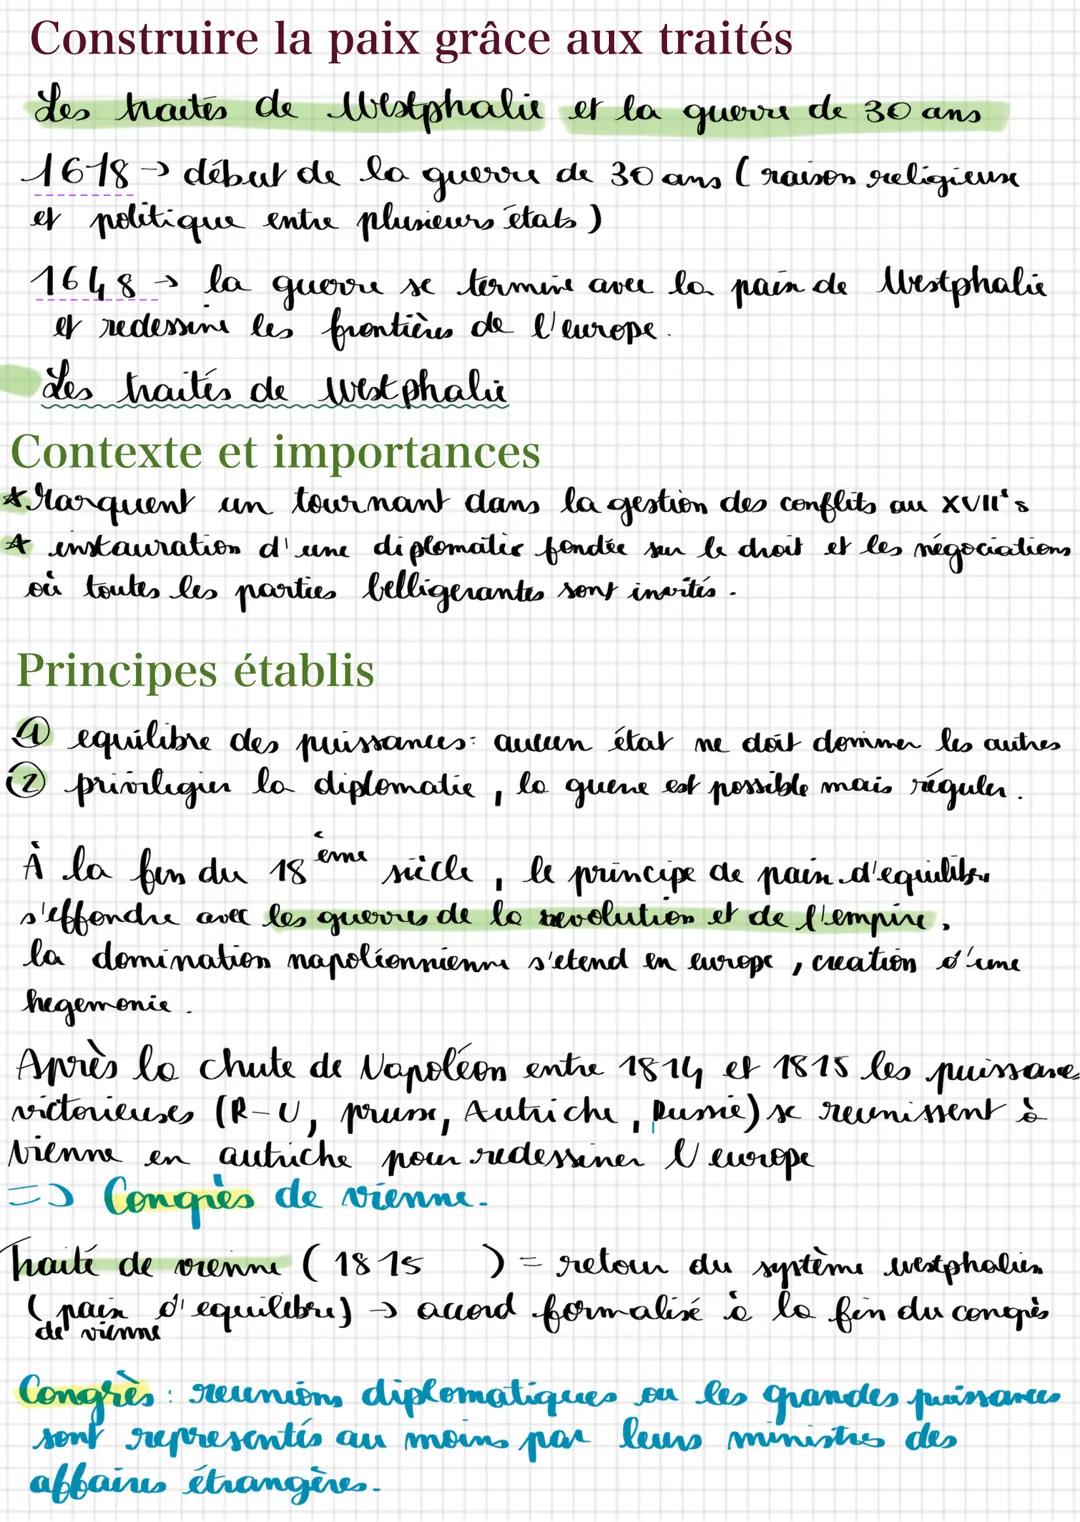 Construire la paix grâce aux traités
Les traités de Westphalie et la guerre de 30 ans
1618 → début de la guerre de 30 ans ( raison religieuse
et politique entre plusieurs états )
1648 → la guerre se termine avec la paix de Westphalie
et redessine les frontières de l'europe.
Les traités de westphalie
Contexte et importances
* Marquent un tournant dans la gestion des conflits au XVII's
* instauration d'une diplomatie fondée sur le droit et les négociations
où toutes les parties belligerantes sont invités.
Principes établis
① equilibre des puissances: aucun état ne doit dominer les autres
② privilegier la diplomatie, la guerre est possible mais réguler.
À la fin du 18 ème siècle, le principe de paix d'equilibre
s'effondre avec les guerres de la revolution et de l'empire,
la domination napoléonnienne s'etend en europe, creation d'une
hegemonie.
Après la chute de Napoléon entre 1814 et 1815 les puissance
victorieuses (R-U, prusse, Autriche, Russie) se reunissent à
Vienne en autriche pour redessiner l'europe
=> Congrès de vienne.
Traité de vienne ( 1815 ) = retour du système westphalien
( paix d'equilibre) → accord formalisé à la fin du congrès
de vienne
Congrès : reunions diplomatiques ou les grandes puissances
sont representés au moins par leurs ministres des
affaires étrangères.